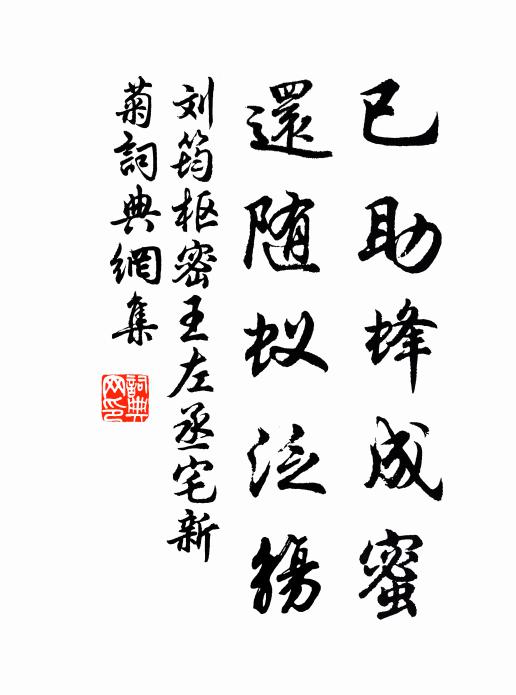 已助蜂成蜜
還随蚁泛觞
刘筠枢密王左丞宅新
菊詞典網集
詞典网印